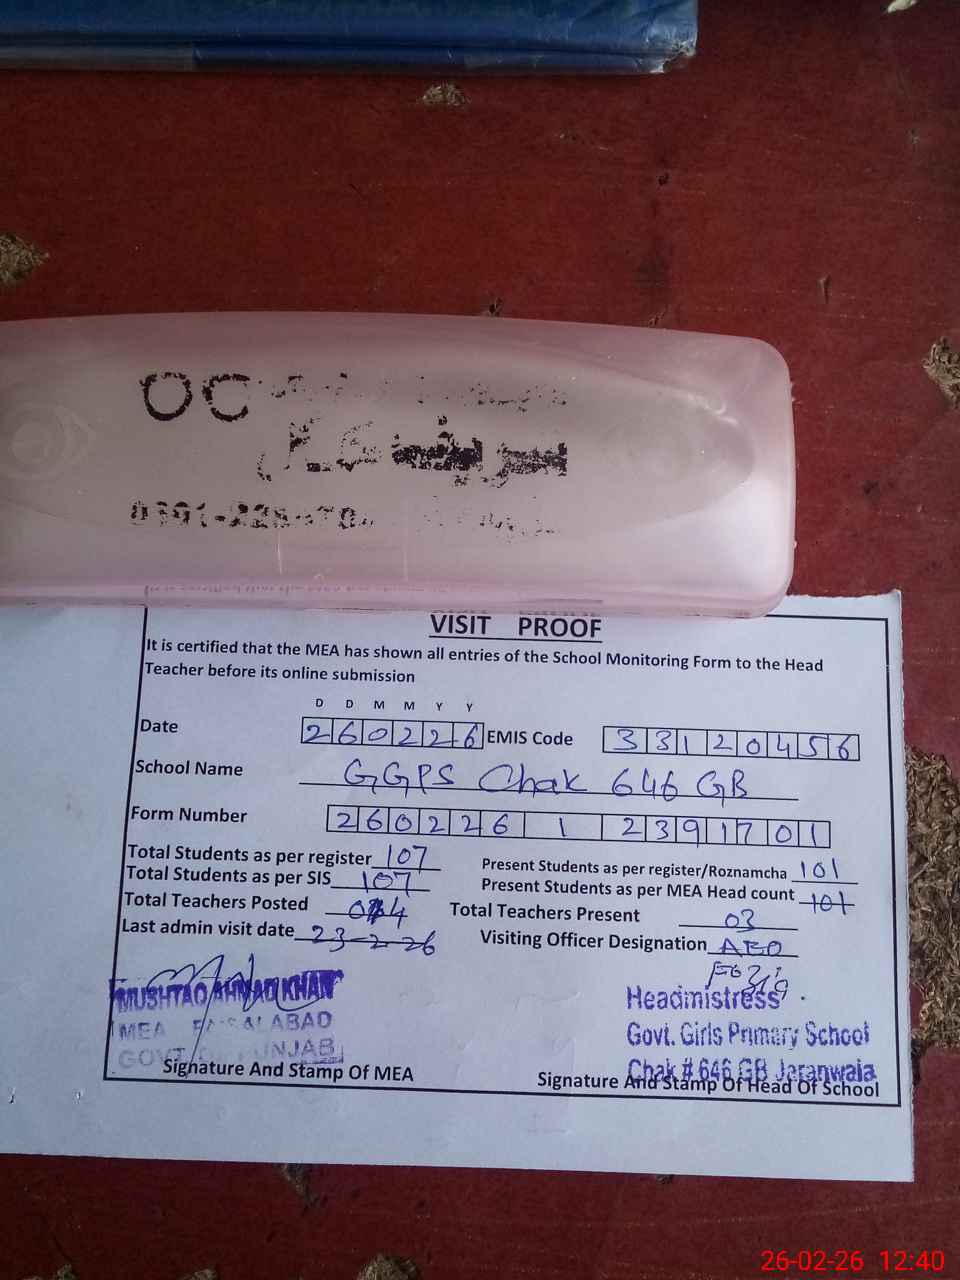 OC
VISIT PROOF
It is certified that the MEA has shown all entries of the School Monitoring Form to the Head
Teacher before its online submission
D D M M Y Y
Date 260226 EMIS Code 33120456
School Name GGPS Chak 646 GB
Form Number 260226 1 2391701
Total Students as per register 107 Present Students as per register/Roznamcha 101
Total Students as per SIS 107 Present Students as per MEA Head count 101
Total Teachers Posted 04 Total Teachers Present 03
Last admin visit date 23-2-26 Visiting Officer Designation AEO
MUSHTAQ AHMAD KHAN
MEA FAISALABAD
GOVT. OF PUNJAB
Signature And Stamp Of MEA
Headmistress
Govt. Girls Primary School
Chak # 646 GB Jaranwala
Signature And Stamp Of Head Of School
26-02-26 12:40